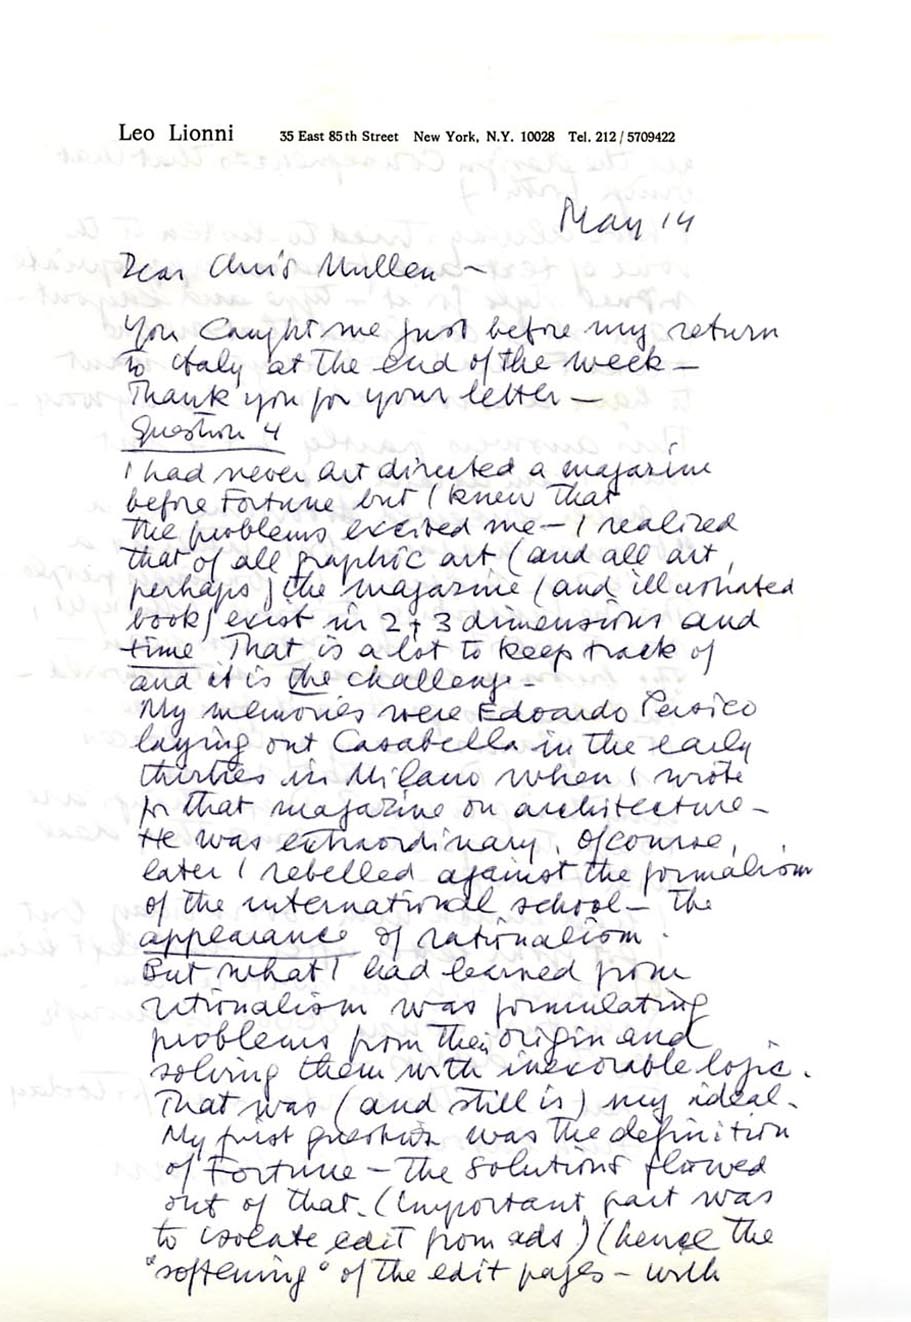 Leo Lionni 35 East 85th Street New York, N.Y. 10028 Tel. 212/5709422
May 14
Dear Chris Mullen –
You caught me just before my return
to Italy at the end of the week –
Thank you for your letter –
Question 4
I had never art directed a magazine
before Fortune but I knew that
the problems excited me – I realized
that of all graphic art (and all art,
perhaps) the magazine (and illustrated
book) exist in 2 + 3 dimensions and
time. That is a lot to keep track of
and it is the challenge –
My memories were Edoardo Persico
laying out Casabella in the early
thirties in Milano when I wrote
for that magazine on architecture –
He was extraordinary. Ofcourse,
later I rebelled against the formalism
of the international school – the
appearance of rationalism.
But what I had learned from
rationalism was formulating
problems from their origin and
solving them with inexorable logic.
That was (and still is) my ideal.
My first question was the definition
of Fortune – The solutions flowed
out of that. (Important part was
to isolate edit from ads) (hence the
"softening" of the edit pages – with